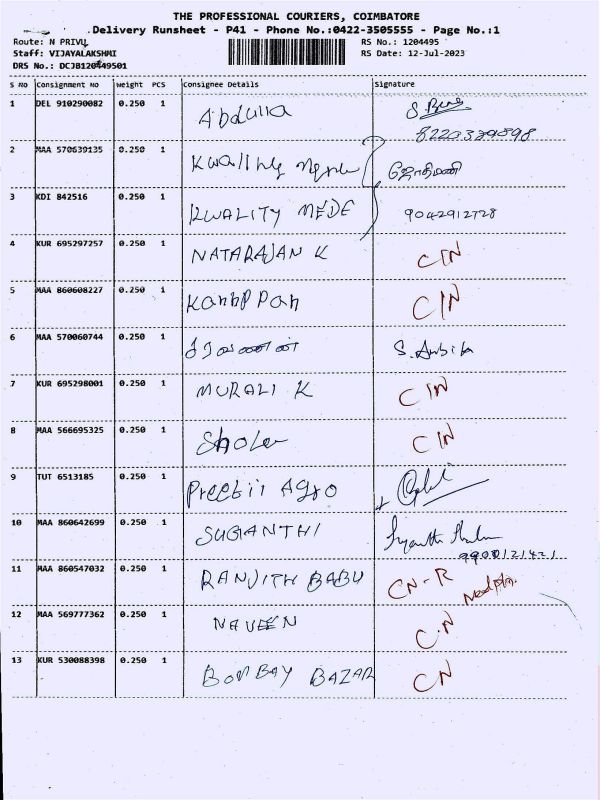 THE PROFESSIONAL COURIERS, COIMBATORE
Delivery Runsheet - P41 - Phone No.:0422-3505555 - Page No.:1
Route: N PRIVU RS No.: 1204495
Staff: VIJAYALAKSHMI RS Date: 12-Jul-2023
DRS No.: DCJB120449501
S No Consignment No Weight PCS Consignee Details Signature
1 DEL 910290082 0.250 1 Abdulla
8220339898
2 MAA 570639135 0.250 1 ஜோதிமணி
3 KDI 842516 0.250 1 KWALITY MEDE 9042912728
4 KUR 695297257 0.250 1 NATARAJAN K C/N
5 MAA 860608227 0.250 1 Kanappan C/N
6 MAA 570060744 0.250 1 சரவணன் S. Ambika
7 KUR 695298001 0.250 1 MURALI K C/N
8 MAA 566695325 0.250 1 C/N
9 TUT 6513185 0.250 1 Preetii Agro
10 MAA 860642699 0.250 1 SUGANTHI
9900121421
11 MAA 860547032 0.250 1 RANJITH BABU CN-R
12 MAA 569777362 0.250 1 NAVEEN C.N
13 KUR 530088398 0.250 1 BOMBAY BAZAR CN